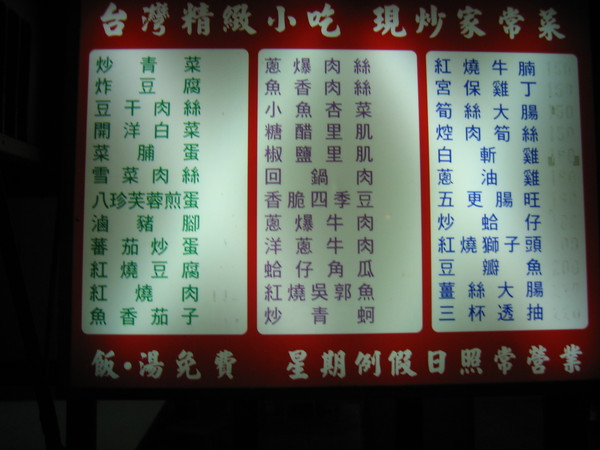 台灣精緻小吃 現炒家常菜
炒青菜
炸豆腐
豆干肉絲
開洋白菜
菜脯蛋
雪菜肉絲
八珍芙蓉煎蛋
滷豬腳
蕃茄炒蛋
紅燒豆腐
紅燒肉
魚香茄子
蔥爆肉絲
魚香肉絲
小魚杏菜
糖醋里肌
椒鹽里肌
回鍋肉
香脆四季豆
蔥爆牛肉
洋蔥牛肉
蛤仔角瓜
紅燒吳郭魚
炒青蚵
紅燒牛腩
宮保雞丁
筍絲大腸
焢肉筍絲
白斬雞
蔥油雞
五更腸旺
炒蛤仔
紅燒獅子頭
豆瓣魚
薑絲大腸
三杯透抽
飯·湯免費 星期例假日照常營業